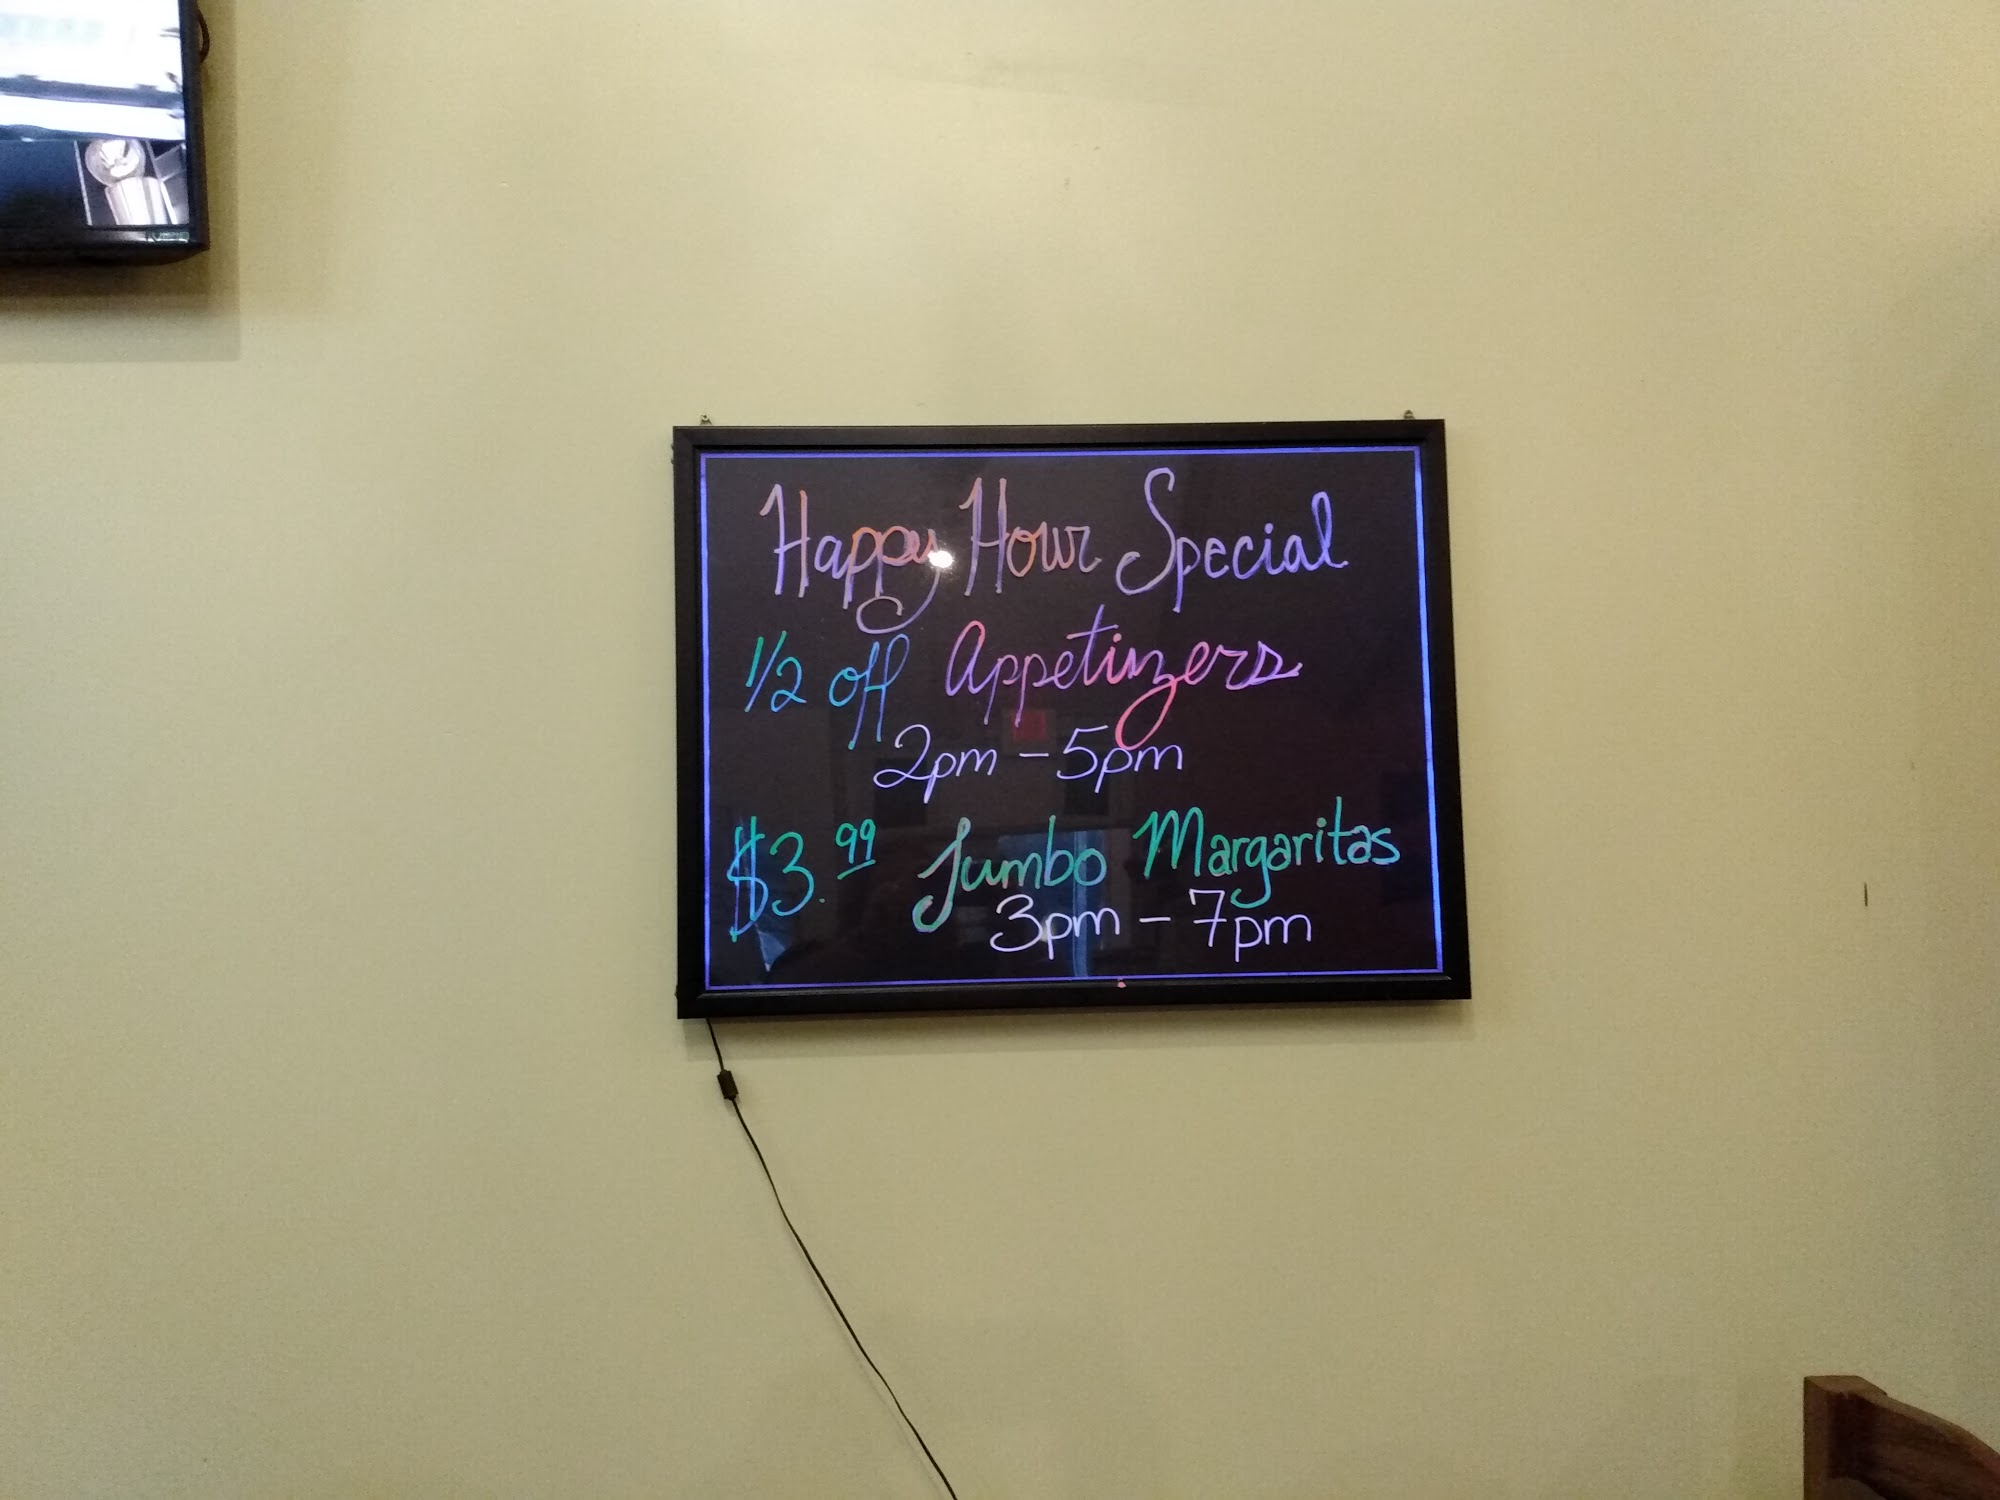 Happy Hour Special
1/2 off Appetizers
2pm - 5pm
$3.99 Jumbo Margaritas
3pm - 7pm